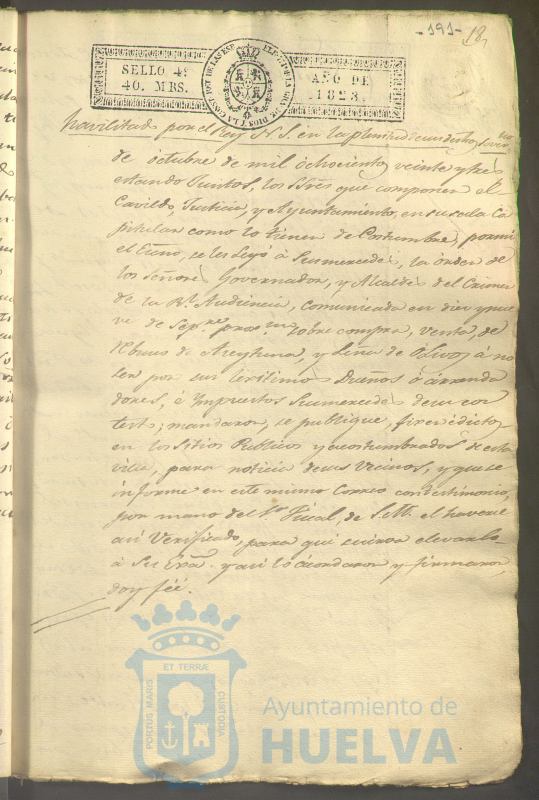 -191- 18,
SELLO 4º AÑO DE
40. MRS. 1823.
havilitado por el Rey N. S. en la plenitud de sus dros
de octubre de mil ochocientos veinte y tres
estando Juntos, los Sres que componen el
Cavildo, Justicia, y Ayuntamiento, en su sala Ca
pitular como lo tienen de Costumbre, por mi
el Esno, se les Leyó à Sus mercedes, la órden de
los Señores Governador, y Alcaldes del Crimen
de la Rl. Audiencia, comunicada en diez y nue
ve de Sepre. proxmo. sobre compra, venta, de
y Leña de Olivos á no
ser por sus lexitimos Dueños ó árrenda
dores, è Impuestos Sus mercedes de su con
testo; mandaron, se publique, fixen édictos
en los Sitios Publicos y acostumbrados de esta
villa, para noticia de sus Vecinos, y que se
informe en este mismo Correo con testimonio,
por mano del Sr. Fiscal, de S.M. el haverse
asi Verificado, para que sirva elevarlo
à Su Exa. y asi lo ácordaron y firmaron,
doy feé.
ET TERRÆ
PORTUS MARIS
CUSTODIA
Ayuntamiento de
HUELVA